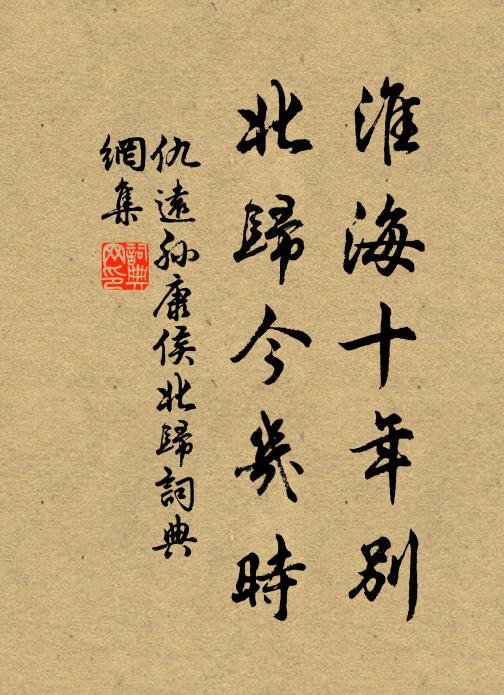 淮海十年別
北歸今幾時
仇遠孫康侯北歸詞典
網集
詞典
网印